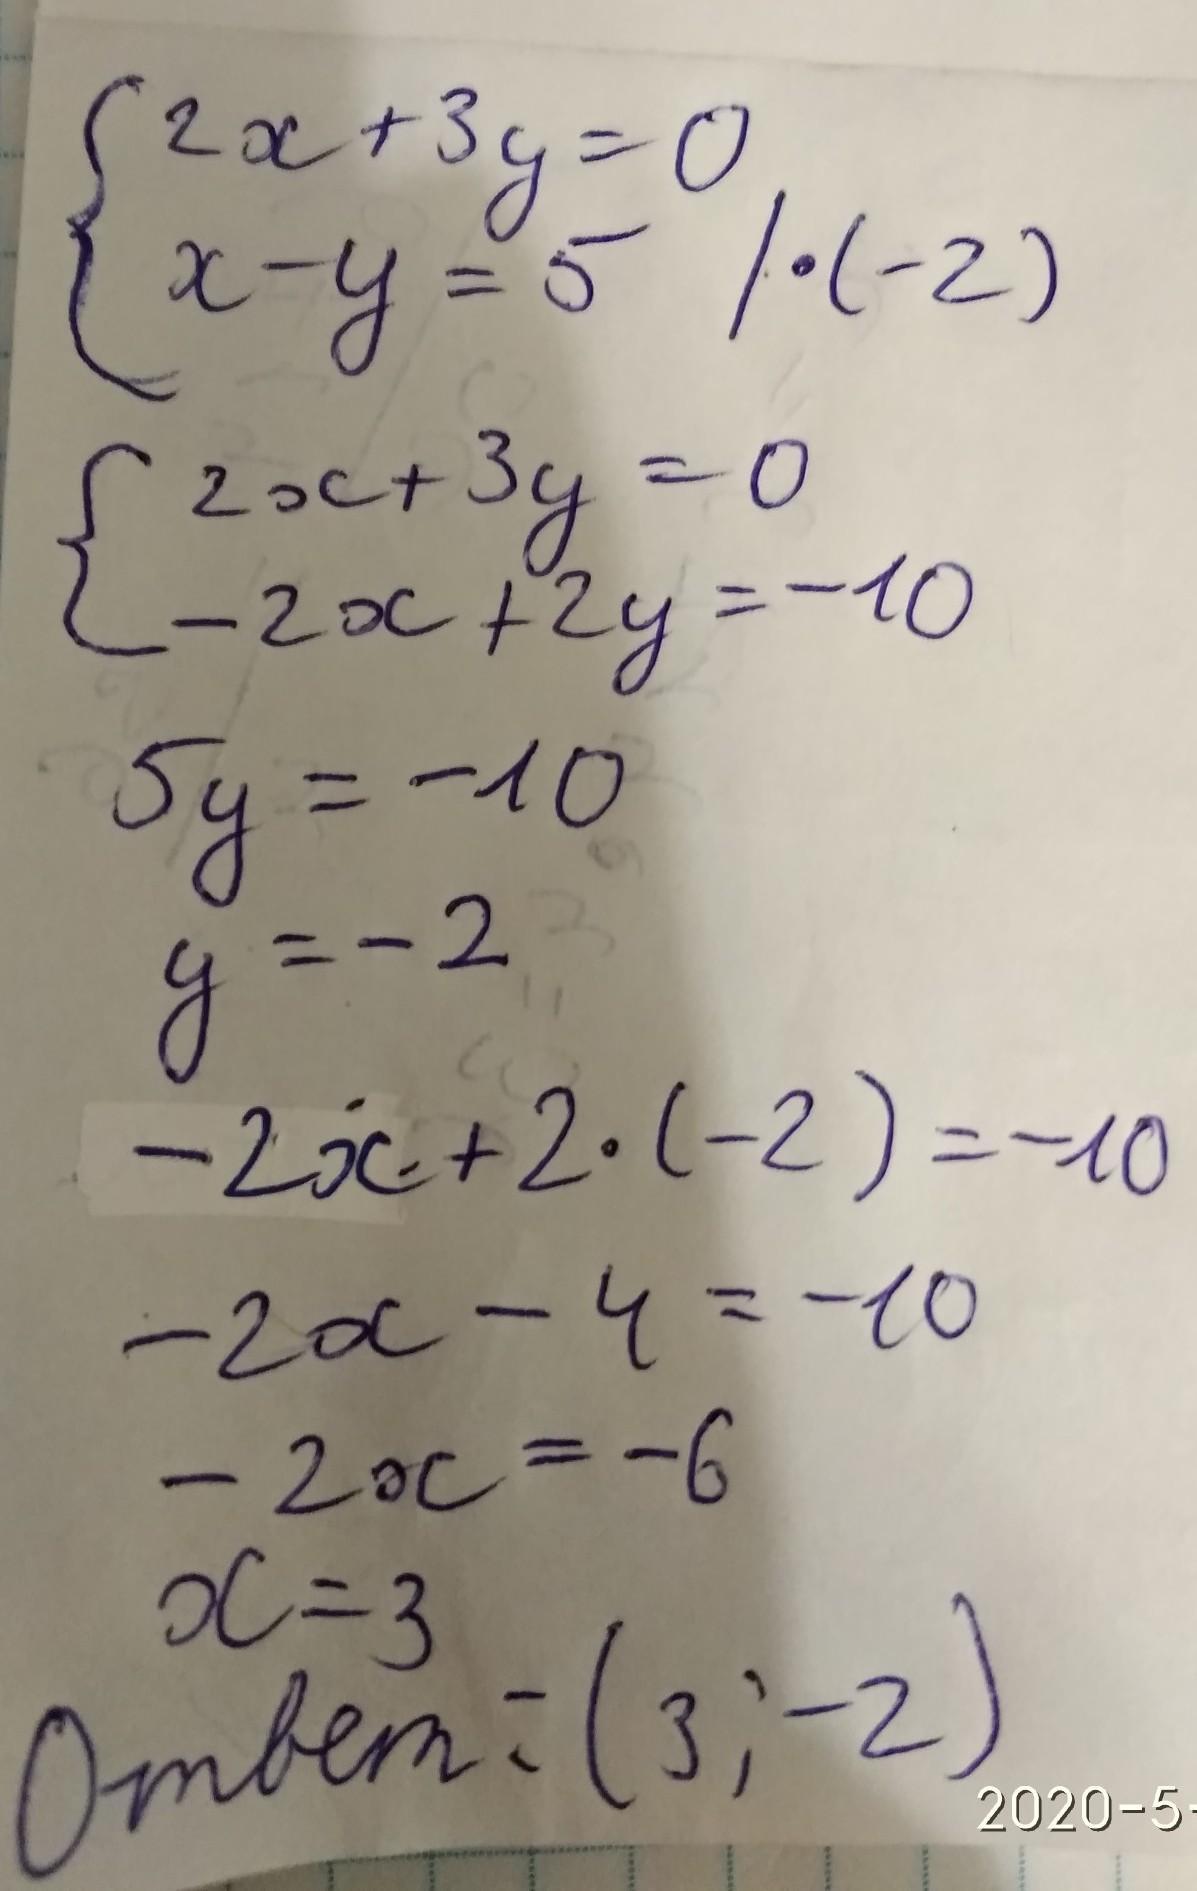 2x+3y=0
x-y=5 /·(-2)
2x+3y=0
-2x+2y=-10
5y=-10
y=-2
-2x+2·(-2)=-10
-2x-4=-10
-2x=-6
x=3
Ответ: (3;-2)
2020-5-